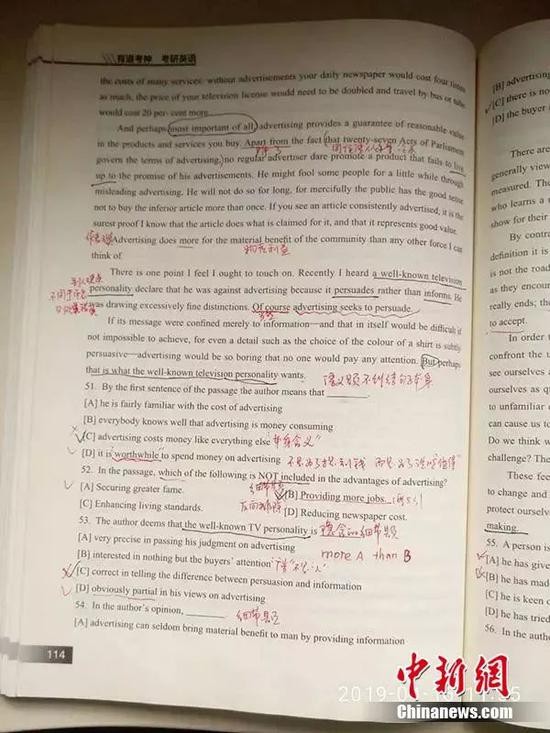 有道考神 考研英语
the costs of many services: without advertisements your daily newspaper would cost four times
as much, the price of your television license would need to be doubled and travel by bus or tube
would cost 20 per cent more.
And perhaps most important of all advertising provides a guarantee of reasonable value
in the products and services you buy. Apart from the fact that twenty-seven Acts of Parliament
govern the terms of advertising, no regular advertiser dare promote a product that fails to live
up to the promise of his advertisements. He might fool some people for a little while through
misleading advertising. He will not do so for long, for mercifully the public has the good sense
not to buy the inferior article more than once. If you see an article consistently advertised, it is the
surest proof I know that the article does what is claimed for it, and that it represents good value.
Advertising does more for the material benefit of the community than any other force I can
物质利益
think of.
There is one point I feel I ought to touch on. Recently I heard a well-known television
personality declare that he was against advertising because it persuades rather than informs. He
was drawing excessively fine distinctions. Of course advertising seeks to persuade.
If its message were confined merely to information—and that in itself would be difficult if
not impossible to achieve, for even a detail such as the choice of the colour of a shirt is subtly
persuasive—advertising would be so boring that no one would pay any attention. But perhaps
that is what the well-known television personality wants.
51. By the first sentence of the passage the author means that
[A] he is fairly familiar with the cost of advertising
[B] everybody knows well that advertising is money consuming
[C] advertising costs money like everything else
[D] it is "worthwhile" to spend money on advertising
52. In the passage, which of the following is NOT included in the advantages of advertising?
[A] Securing greater fame.
[B] Providing more jobs.
[C] Enhancing living standards.
[D] Reducing newspaper cost.
53. The author deems that the well-known TV personality is
[A] very precise in passing his judgment on advertising
more A than B
[B] interested in nothing but the buyers' attention
[C] correct in telling the difference between persuasion and information
[D] obviously partial in his views on advertising
54. In the author's opinion,
细节题
[A] advertising can seldom bring material benefit to man by providing information
114
[B] advertising
[C] there is no
[D] the buyer
There are
generally view
measured. The
who learns a
show for their
By contra
definition it is
is not the road
as they encoun
really ends; the
to accept.
In order
confront the
see ourselves a
ourselves as
to unfamiliar
can cause us to
Do we think
challenge? The
These feel
to change and
protect ourselves
making.
55. A person is
[A] he has given
[B] he has made
[C] he is keen
[D] he has tried
56. In the author
中新網
Chinanews.com